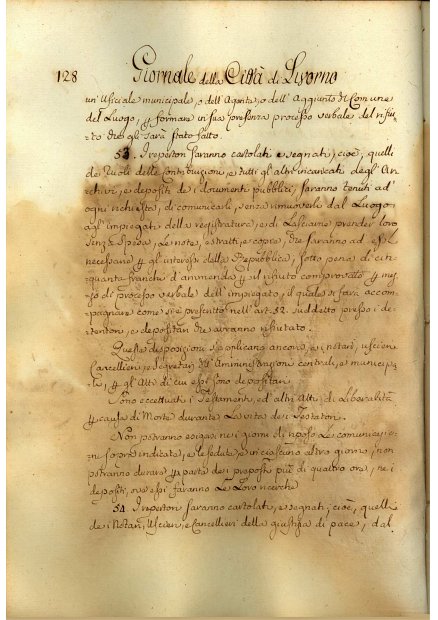 128 Giornale della Città di Livorno
un' Ufiziale municipale, o dell' Agente, o dell' Aggiunto del Comune
del Luogo, per formare in sua presenza processo verbale del rifiu-
to che gli sarà stato fatto.
53. I repertorj saranno cartolati, e segnati; cioè, quelli
dei Ruoli delle Contribuzioni, e tutti gli altri incaricati degl' Ar-
chivj, e depositi dei documenti pubblici, saranno tenuti ad'
ogni richiesta, di comunicarli, senza rimuoverli dal Luogo,
agl' impiegati della registratura, e di Lasciarne prender loro
senza spesa, Le note, estratti, e copie, che saranno ad essi
necessarie per gl' interessi della Repubblica, sotto pena di cin-
quanta franchi d' ammenda per il rifiuto comprovato per mez-
zo di processo verbale dell' impiegato, il quale si farà accom-
pagnare come si è prescritto nell' art. 52. suddetto presso i de-
tentori, e depositarj che avranno rifiutato.
Queste disposizioni si applicano ancora ai notari, uscieri,
Cancellieri, e Segretarj dell' Amministrazioni centrali, e municipa-
li, per gl' Atti di cui essi sono depositarj.
Sono eccettuati i Testamenti, ed altri Atti di Liberalità
per causa di Morte durante La vita dei Testatori.
Non potranno esigersi nei giorni di riposo Le comunicazio-
ni sopra indicate, e le sedute, in ciascuno altro giorno, non
potranno durare per parte dei proposti più di quattro ore, nei
depositi, ove essi faranno Le Loro ricerche.
54. I repertorj saranno cartolati, e segnati; cioè, quelli
dei Notari, Uscieri, e Cancellieri della giustizia di pace, dal